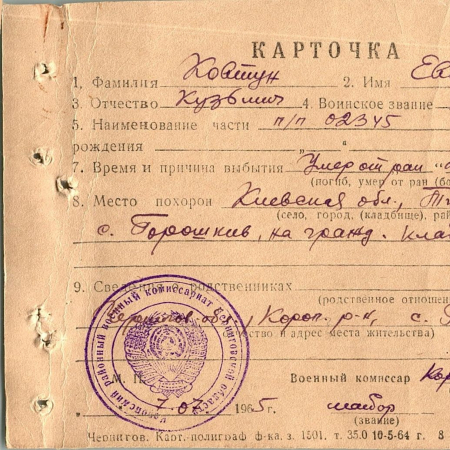 КАРТОЧКА
1. Фамилия Ковтун 2. Имя Ев
3. Отчество Кузьмич 4. Воинское звание
5. Наименование части п/п 02345
рождения „ “
7. Время и причина выбытия Умер от ран
(погиб, умер от ран (бо
8. Место похорон Киевская обл.,
(село, город, (кладбище), рай
с. Горошков, на гражд. клад
9. Сведения о родственниках
(родственное отношен
Чернигов. обл., Короп. р-н, с.
и адрес места жительства)
М. П. Военный комиссар Кор
7.07 1965г. майор
(звание)
Чернигов. Карт.-полиграф ф-ка. з. 1501. т. 35.0 10-5-64 г. 8
районный военный комиссариат Черниговской области